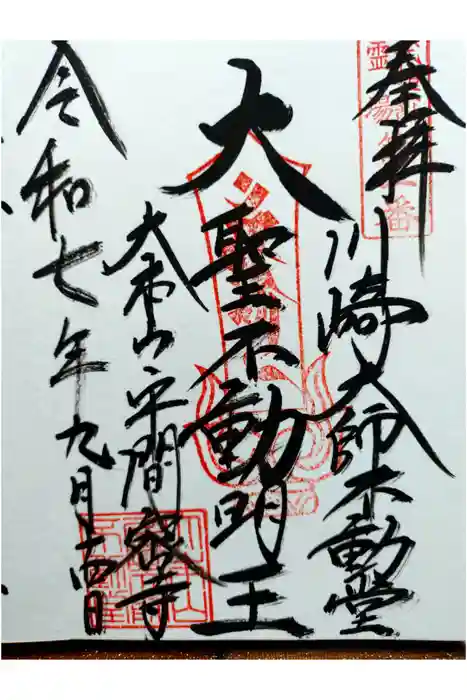 奉拝
川崎大師不動堂
大聖不動明王
大本山平間密寺
令和七年九月十四日